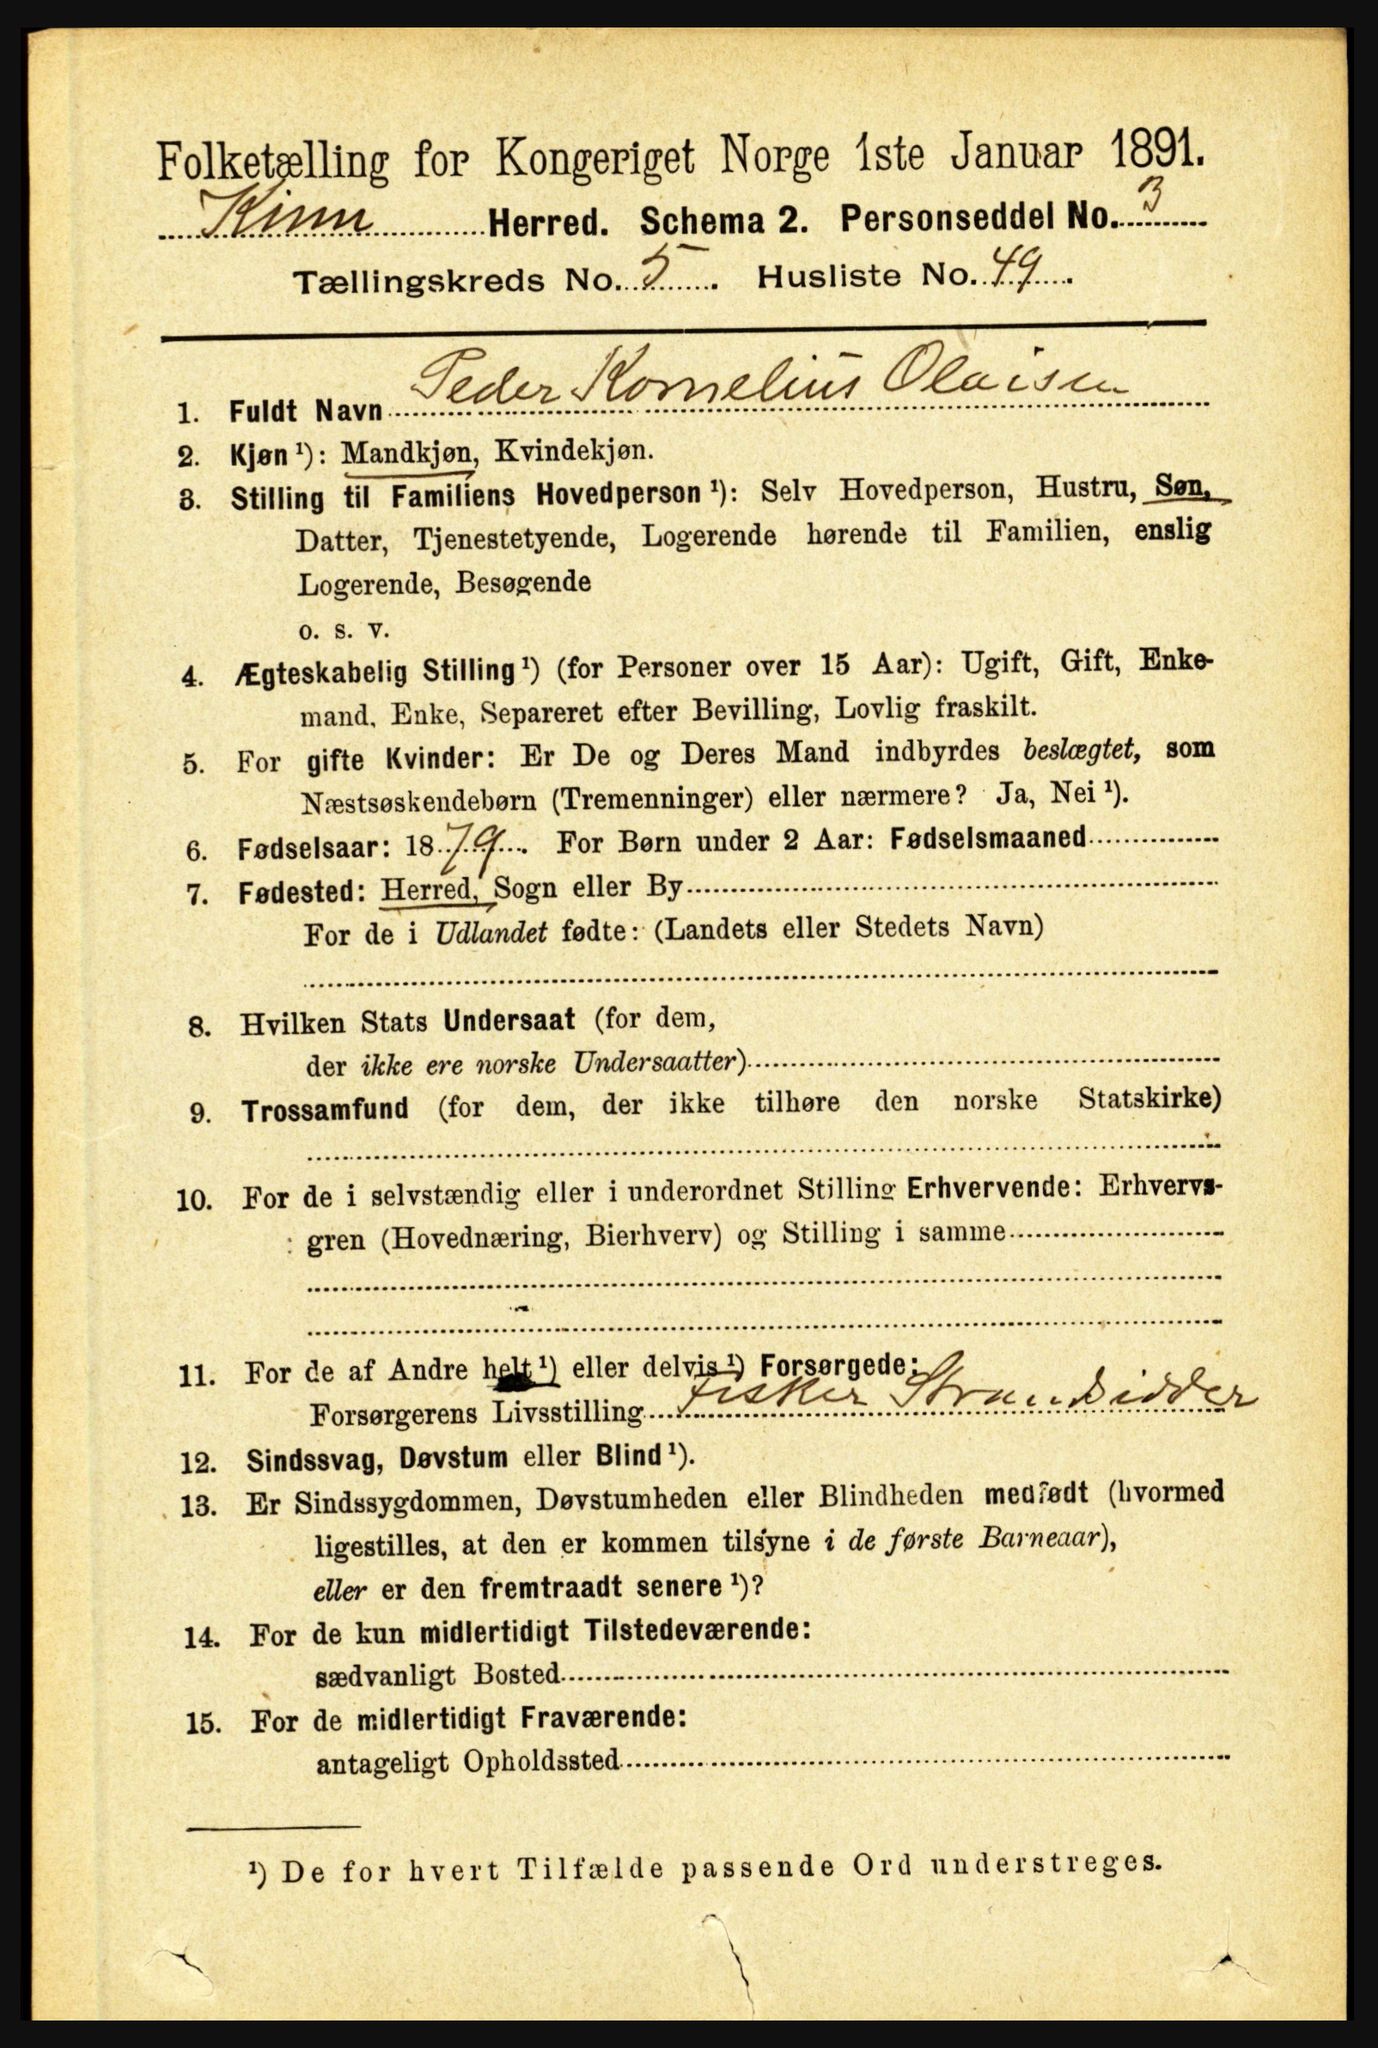 Folketælling for Kongeriget Norge 1ste Januar 1891.
Kinn Herred. Schema 2. Personseddel No. 3
Tællingskreds No. 5. Husliste No. 49.
1. Fuldt Navn Peder Kornelius Olaisen
2. Kjøn ¹): Mandkjøn, Kvindekjøn.
3. Stilling til Familiens Hovedperson ¹): Selv Hovedperson, Hustru, Søn,
Datter, Tjenestetyende, Logerende hørende til Familien, enslig
Logerende, Besøgende
o. s. v.
4. Ægteskabelig Stilling ¹) (for Personer over 15 Aar): Ugift, Gift, Enke-
mand, Enke, Separeret efter Bevilling, Lovlig fraskilt.
5. For gifte Kvinder: Er De og Deres Mand indbyrdes beslægtet, som
Næstsøskendebørn (Tremenninger) eller nærmere? Ja, Nei ¹).
6. Fødselsaar: 1879. For Børn under 2 Aar: Fødselsmaaned
7. Fødested: Herred, Sogn eller By
For de i Udlandet fødte: (Landets eller Stedets Navn)
8. Hvilken Stats Undersaat (for dem,
der ikke ere norske Undersaatter)
9. Trossamfund (for dem, der ikke tilhøre den norske Statskirke)
10. For de i selvstændig eller i underordnet Stilling Erhvervende: Erhvervs-
gren (Hovednæring, Bierhverv) og Stilling i samme
11. For de af Andre helt ¹) eller delvis ¹) Forsørgede:
Forsørgerens Livsstilling Fisker Strandsidder
12. Sindssvag, Døvstum eller Blind ¹).
13. Er Sindssygdommen, Døvstumheden eller Blindheden medfødt (hvormed
ligestilles, at den er kommen tilsyne i de første Barneaar),
eller er den fremtraadt senere ¹)?
14. For de kun midlertidigt Tilstedeværende:
sædvanligt Bosted
15. For de midlertidigt Fraværende:
antageligt Opholdssted
¹) De for hvert Tilfælde passende Ord understreges.